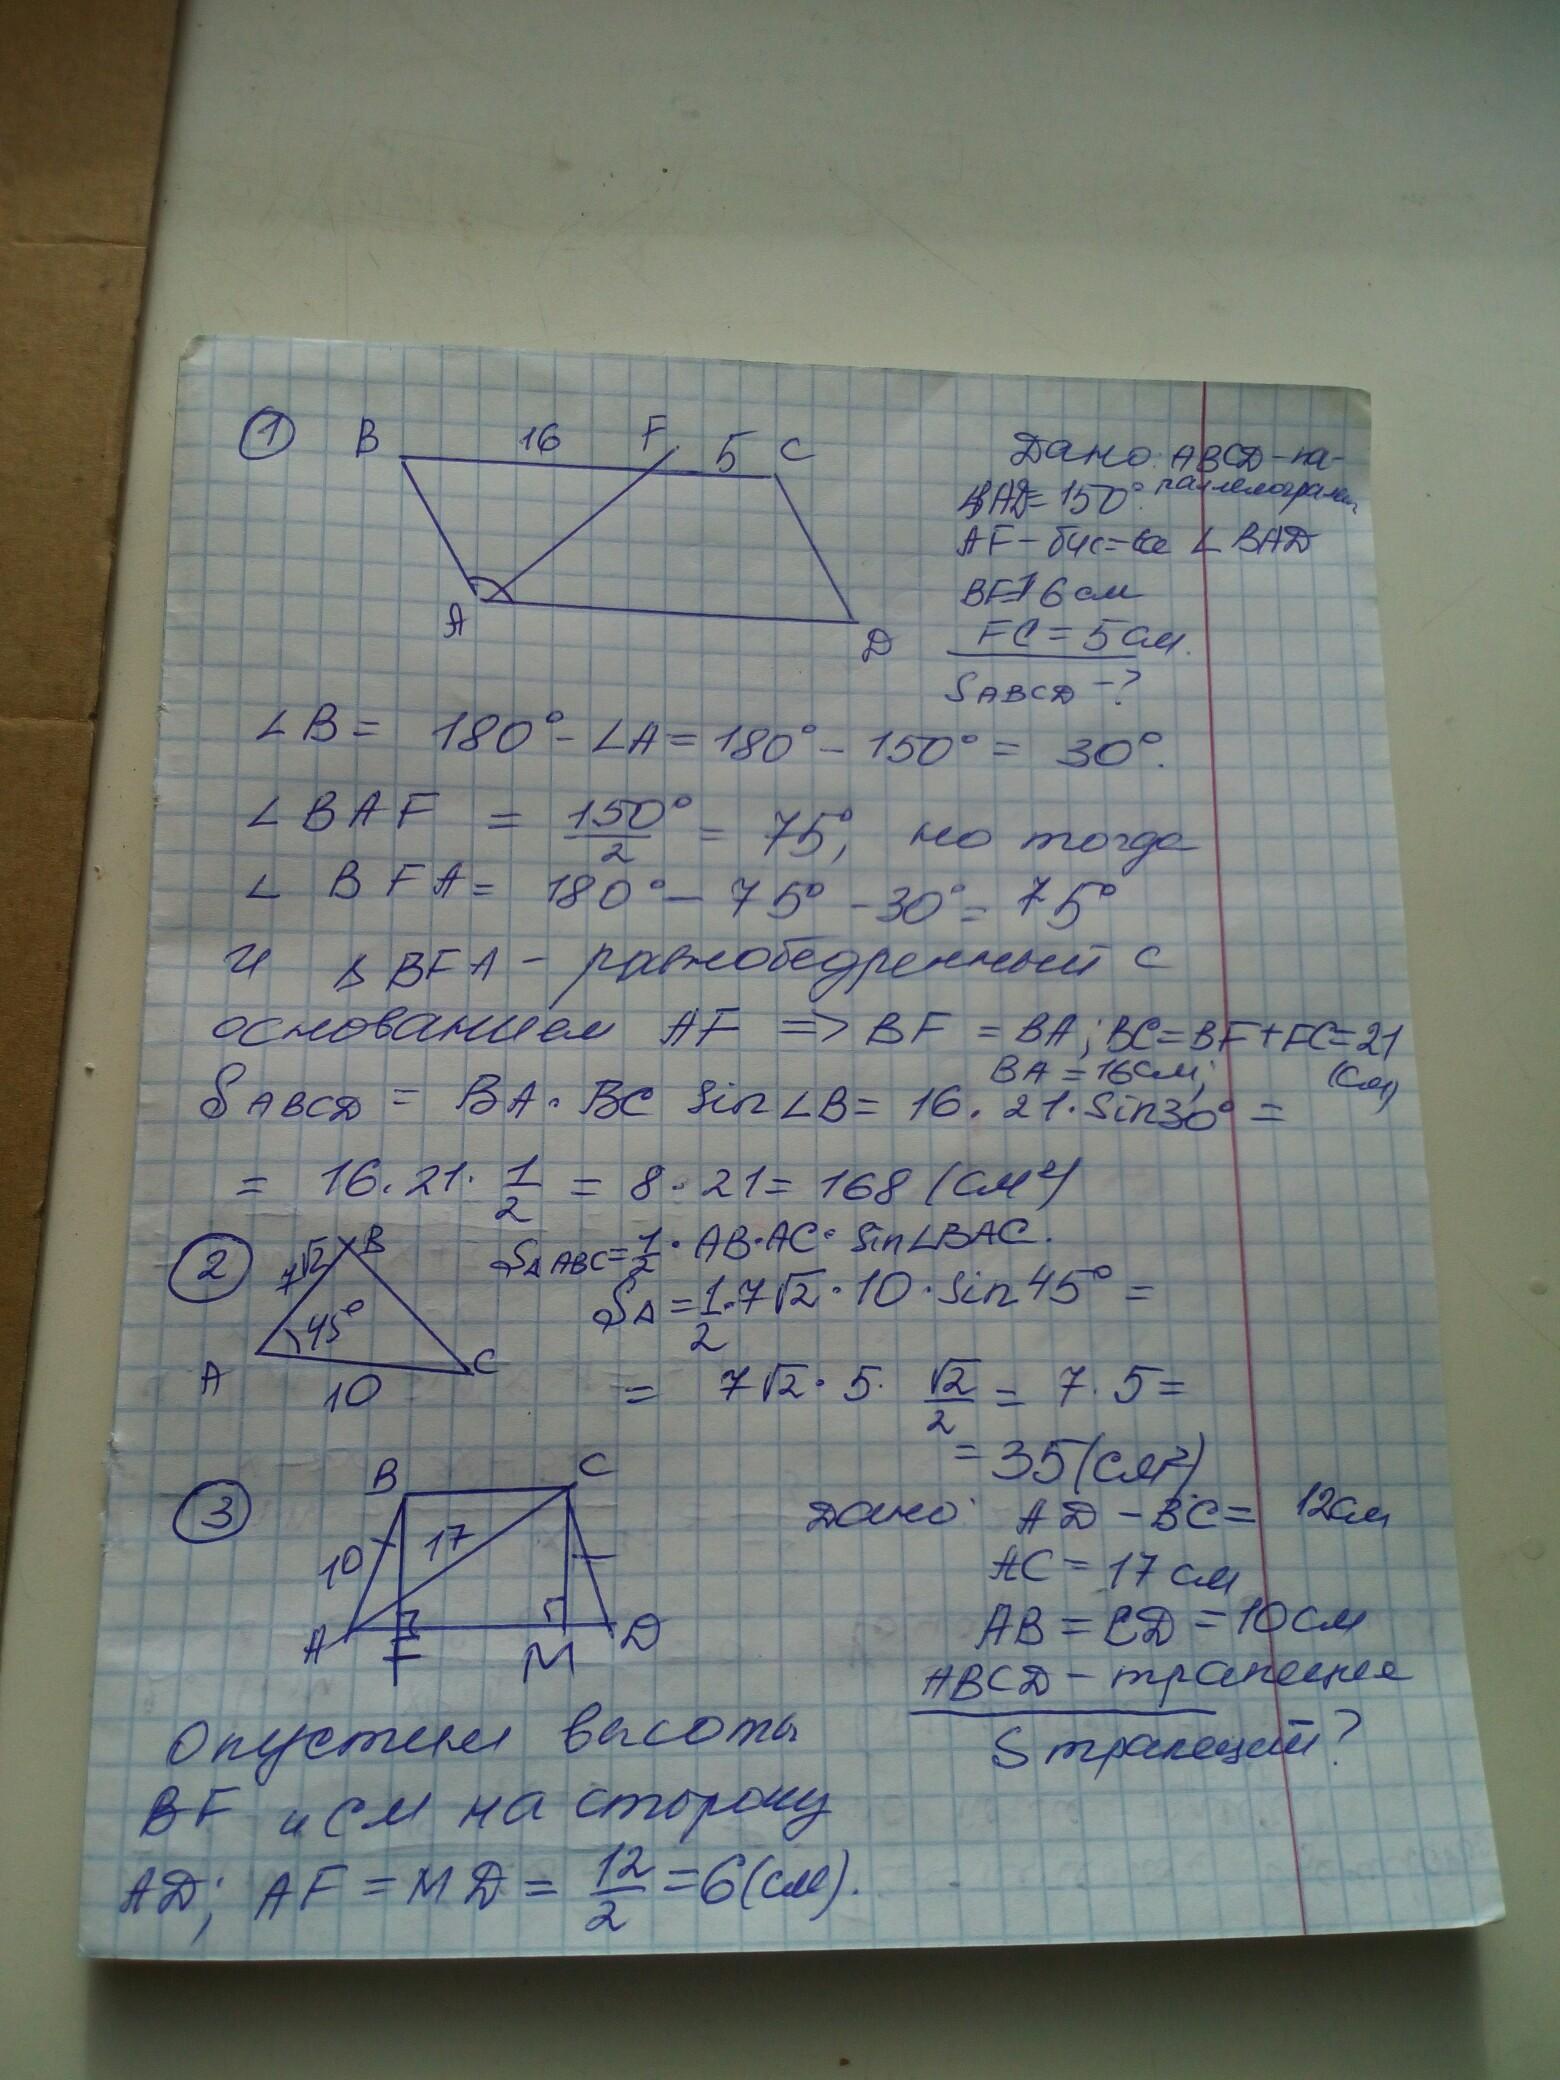 1 B 16 F 5 C
A D
Дано: ABCD - па-
раллелограмм
∠BAD = 150°.
AF - бис-са ∠ BAD
BF = 16 см
FC = 5 см.
SABCD - ?
∠B = 180° - ∠A = 180° - 150° = 30°.
∠BAF = 150°/2 = 75°, но тогда
∠ BFA = 180° - 75° - 30° = 75°
и Δ BFA - равнобедренный с
основанием AF => BF = BA; BC = BF + FC = 21
BA = 16 см; (см)
SABCD = BA · BC sin∠B = 16 · 21 · sin30° =
= 16 · 21 · 1/2 = 8 · 21 = 168 (см²)
2 7√2 B
45°
A 10 C
SΔABC = 1/2 · AB · AC · sin∠BAC.
SΔ = 1/2 · 7√2 · 10 · sin45° =
= 7√2 · 5 · √2/2 = 7 · 5 =
= 35 (см²)
3 B C
10 17
A F M D
Дано: AD - BC = 12см
AC = 17 см
AB = CD = 10 см
ABCD - трапеция
S трапеций?
Опустим высоты
BF и CM на сторону
AD; AF = MD = 12/2 = 6(см).